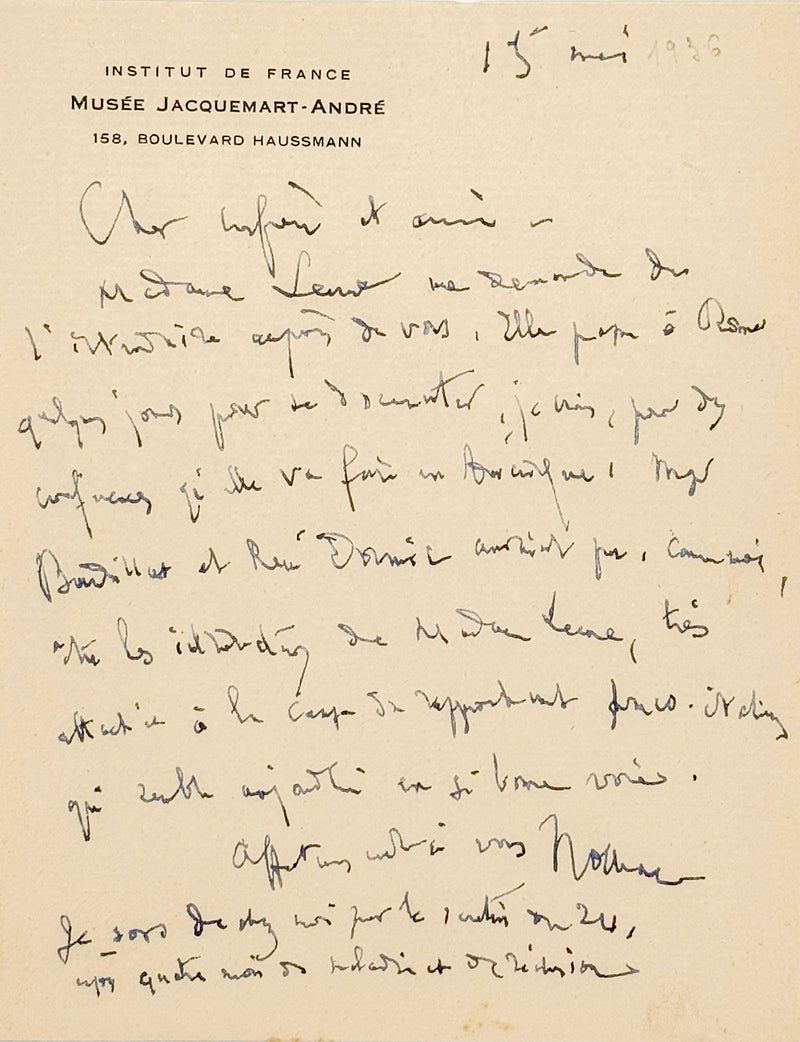 15 mai 1936
INSTITUT DE FRANCE
MUSÉE JACQUEMART-ANDRÉ
158, BOULEVARD HAUSSMANN
Cher confrère et ami —
Madame me demande de
l'introduire auprès de vous. Elle passe à Rome
quelques jours pour se documenter, je crois, pour des
conférences qu'elle va faire en Amérique. Mgr
Baudrillart et René Doumic auraient pu, comme moi,
être les introducteurs de Madame, très
attachée à la cause du rapprochement franco-italien
qui semble aujourd'hui en si bonne voie.
Affectueusement à vous Nolhac
Je sors de chez moi pour le scrutin du 24,
après quatre mois de maladie et de réclusion